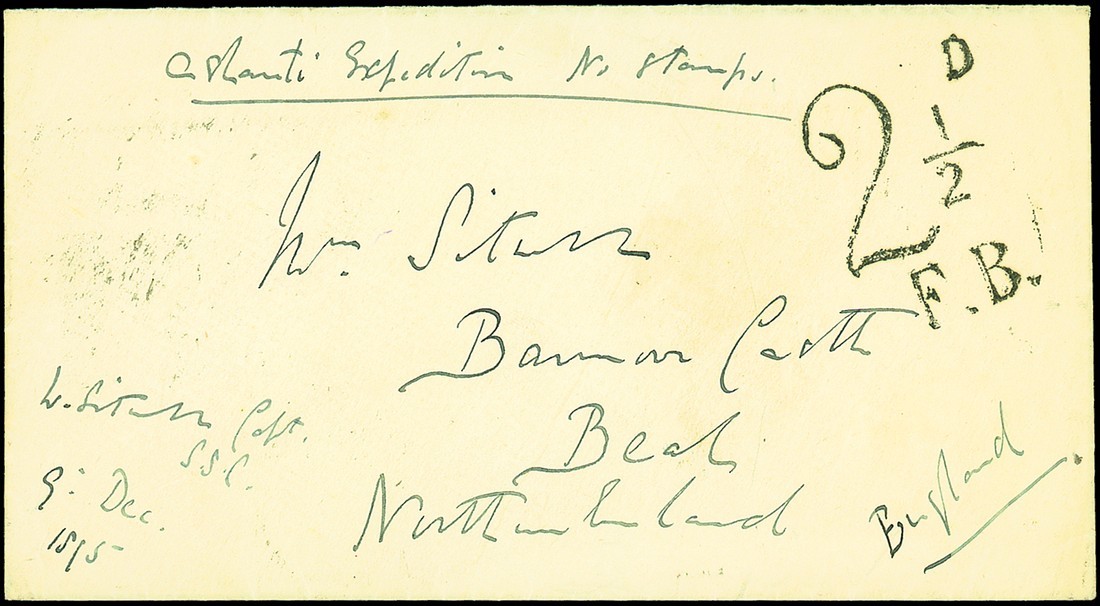 Ashanti Expedition No Stamps.
2 1/2 D
F.B.
Mrs. Sitwell
Barmoor Castle
Beal
Northumberland
England
W. Sitwell Capt.
S.S.C.
9: Dec.
1895